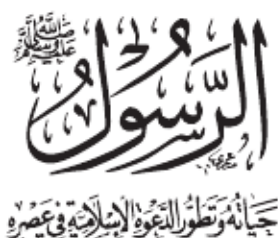 الرَّسُولُ ﷺ
حَيَاتُهُ وَتَطَوُّرُ الدَّعْوَةِ الإِسْلَامِيَّةِ فِي عَصْرِهِ